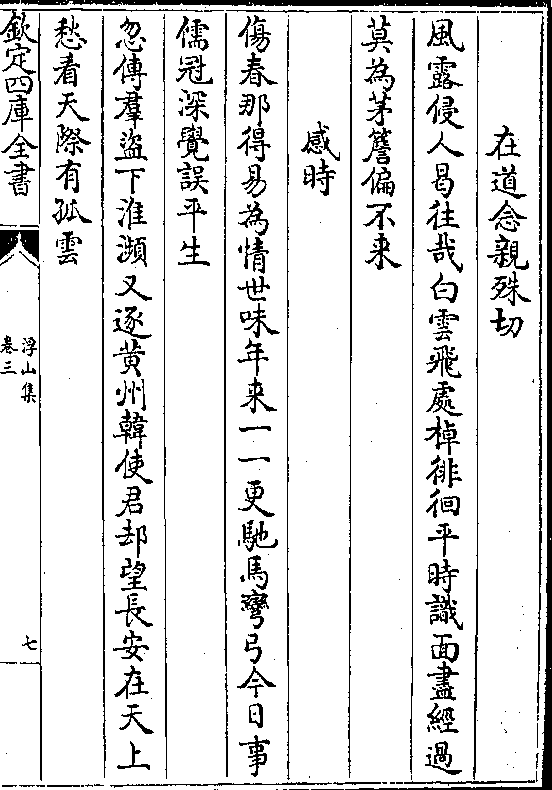 在道念親殊切
風露侵人曷往哉白雲飛處棹徘徊平時識面盡經過
莫為茅簷偏不来
感時
傷春那得易為情世味年来一一更馳馬彎弓今日事
儒冠深覺誤平生
忽傳羣盜下淮濒又逐黄州韓使君却望長安在天上
愁看天際有孤雲
欽定四庫全書
浮山集
卷三
七